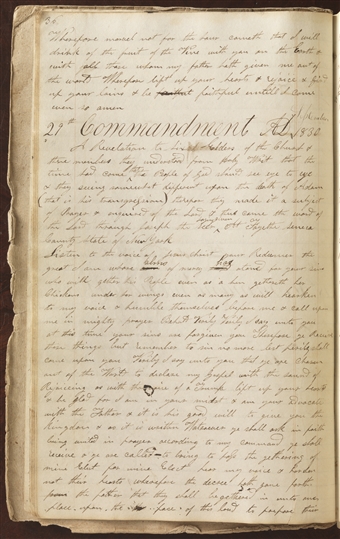 36.
Wherefore marvel not for the hour cometh that I will
drink of the fruit of the Vine with you on the Earth &
with all those whom my father hath given me out of
the world Wherefore lift up your hearts & rejoice & gird
up your loins & be faithful untill I come
even so amen
29th Commandment AD 1830
A Revelation to six Elders of the Church &
three members they understood from Holy Writ that the
time had come that the People of God should see eye to eye
& they seeing somewhat different upon the death of Adam
(that is his transgression) therefore they made it a subject
of Prayer & enquired of the Lord & thus came the word of
the Lord through Joseph the Seer Fayette Seneca
County State of New York
Listen to the voice of Jesus Christ your Redeemer the
great I am whose arm of mercy hath atoned for your sins
who will gether his People even as a hen gethereth her
Chickens under her wings even as many as will hearken
to my voice & humble themselves before me & call upon
me in mighty prayer Behold Verily Verily I say unto you
at this time your sins are forgiven you Therefore ye receive
these things but remember to sin no more lest perils shall
come upon you Verily I say unto you that ye are Chosen
out of the World to declare my Gospel with the sound of
Rejoicing as with the voice of a Trump lift up your hearts
& be glad for I am in your midst & am your Advocate
with the Father & it is his good will to give you the
Kingdom & as it is written Whatsoever ye shall ask in faith
being united in prayer according to my command ye shall
receive & ye are called to bring to pass the gethering of
mine Elect for mine Elect hear my voice & harden
not their hearts wherefore the decree hath gone forth
from the father that they shall be gethered in unto one
place upon the face of this land to prepare their